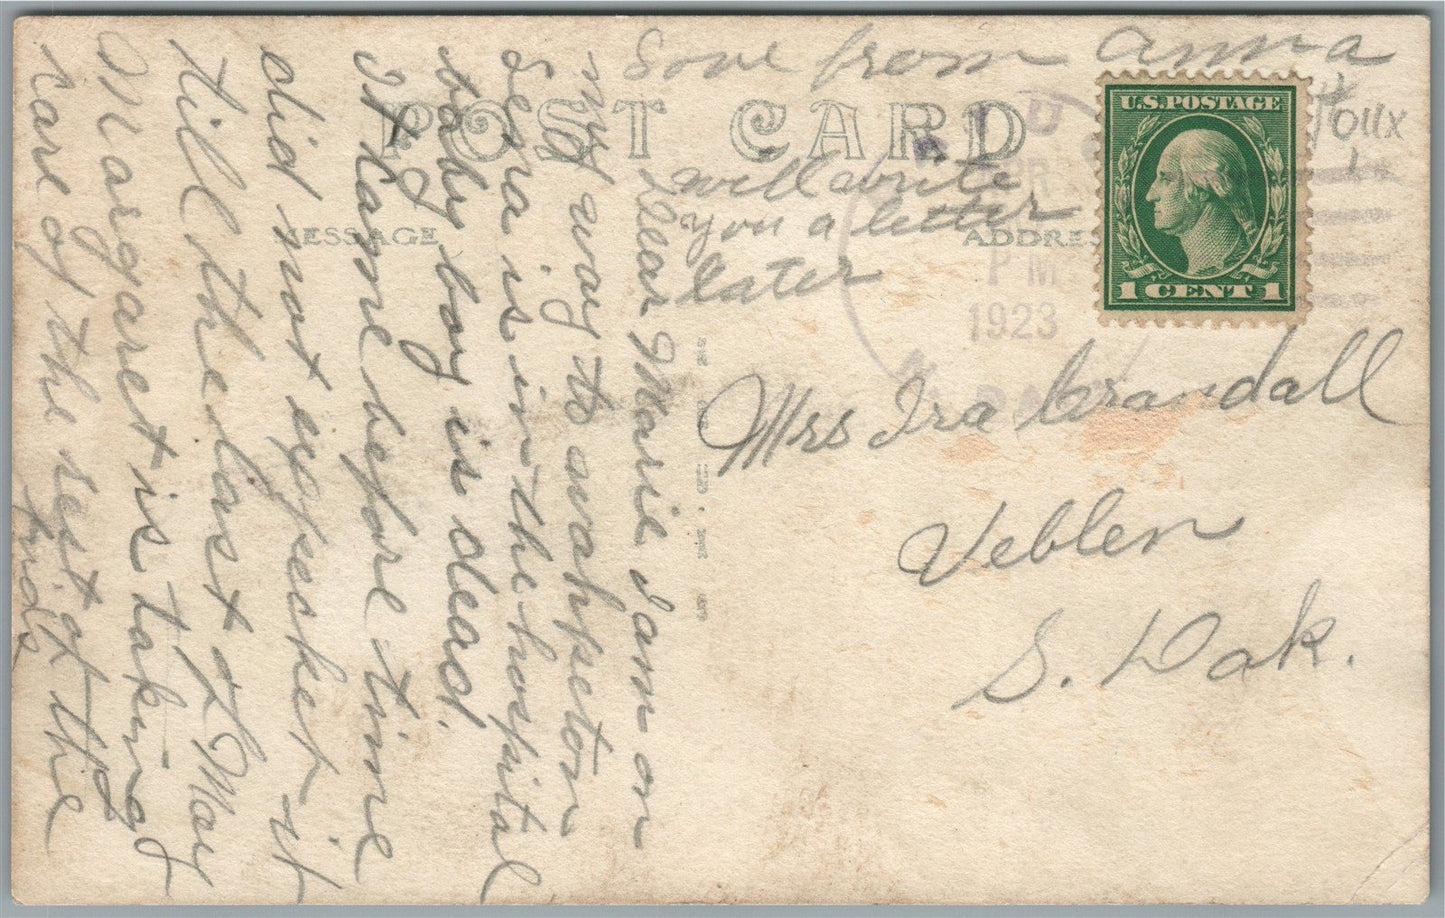 POST CARD
MESSAGE
ADDRES
U.S. POSTAGE
1 CENT 1
PM
1923
Dear Marie I am on
my way to wahpeton
Lena is in the hospital
baby boy is dead.
It came before time
did not expect it
till the last of May
Margaret is taking
care of the rest of the
kids
Love from Anna
will write
you a letter
later
Mrs Ira Crandall
Veblen
S. Dak.